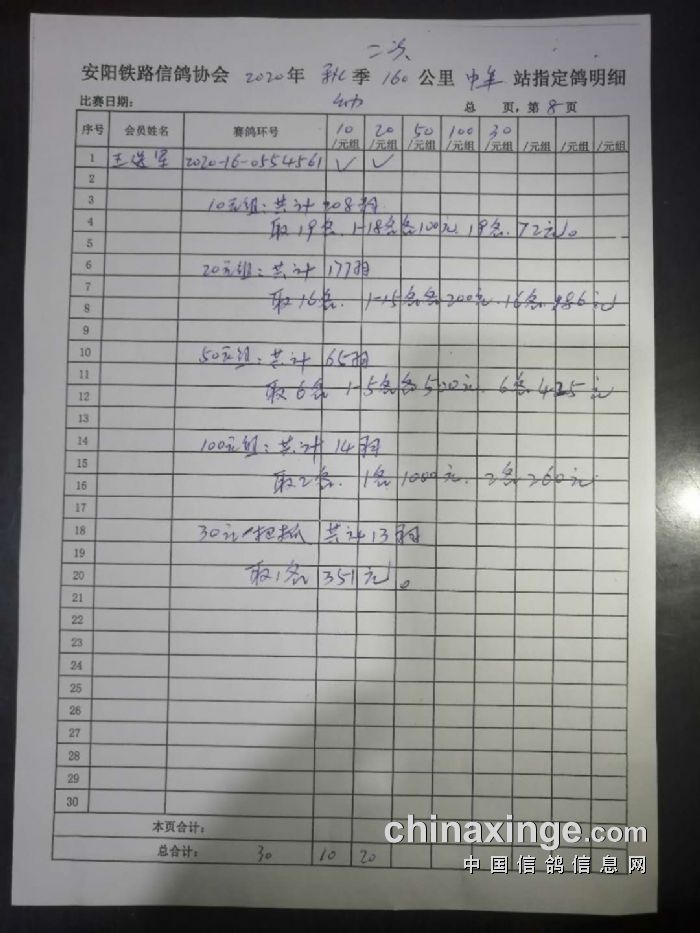 二次
安阳铁路信鸽协会 2020年 秋季 160公里 中牟 站指定鸽明细
比赛日期: 总 页,第8页
序号 会员姓名 赛鸽环号 10/元组 20/元组 50/元组 100/元组 30/元组 /元组 /元组 /元组
1 2020-16-0554561 ✓ ✓
2
3 10元组:共计208羽
4 取19名.1-18名各100元.19名.72元。
5
6 20元组:共计177羽
7 取16名.1-15名各200元.16名.186元
8
9
10 50元组:共计65羽
11 取6名 1-5名各500元.6名425元
12
13
14 100元组:共计14羽
15 取2名.1名1000元.2名260元
16
17
18 30元 共计13羽
19
20 取1名351元。
21
22
23
24
25
26
27
28
29
30
本页合计:
总合计: 30 10 20
chinaxinge.com
中国信鸽信息网